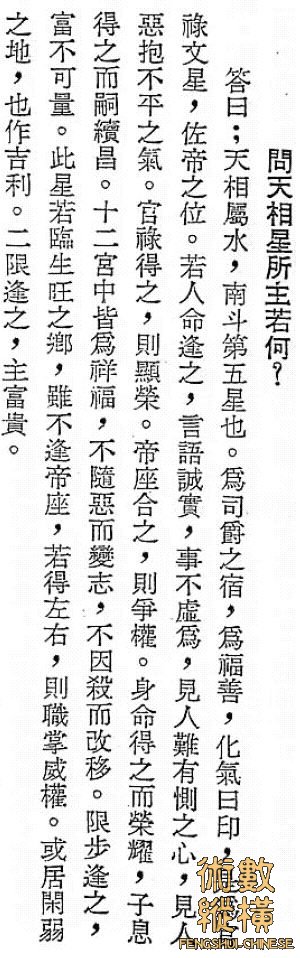 問天相星所主若何？
答曰；天相屬水，南斗第五星也。爲司爵之宿，爲福善，化氣曰印，
祿文星，佐帝之位。若人命逢之，言語誠實，事不虛爲，見人難有惻之心，見人
惡抱不平之氣。官祿得之，則顯榮。帝座合之，則爭權。身命得之而榮耀，子息
得之而嗣續昌。十二宮中皆爲祥福，不隨惡而變志，不因殺而改移。限步逢之，
富不可量。此星若臨生旺之鄉，雖不逢帝座，若得左右，則職掌威權。或居閑弱
之地，也作吉利。二限逢之，主富貴。
術數
縱橫
FENGSHUI-CHINESE